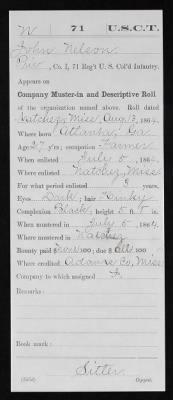 N 71 U.S.C.T.
John Nelson
Priv, Co. I, 71 Reg't U. S. Col'd Infantry.
Appears on
Company Muster-in and Descriptive Roll
of the organization named above. Roll dated
Natchez, Miss. Aug 13, 1864.
Where born Attlanta, Ga
Age 27 y'rs; occupation Farmer
When enlisted July 5, 1864.
Where enlisted Natchez, Miss
For what period enlisted 3 years.
Eyes Dark; hair Kinky
Complexion Black; height 5 ft. 8 in.
When mustered in July 5, 1864.
Where mustered in Natchez
Bounty paid $ 100; due $ 100
Where credited Adams Co, Miss
Company to which assigned
Remarks:
Book mark:
Sitler
Copyist.